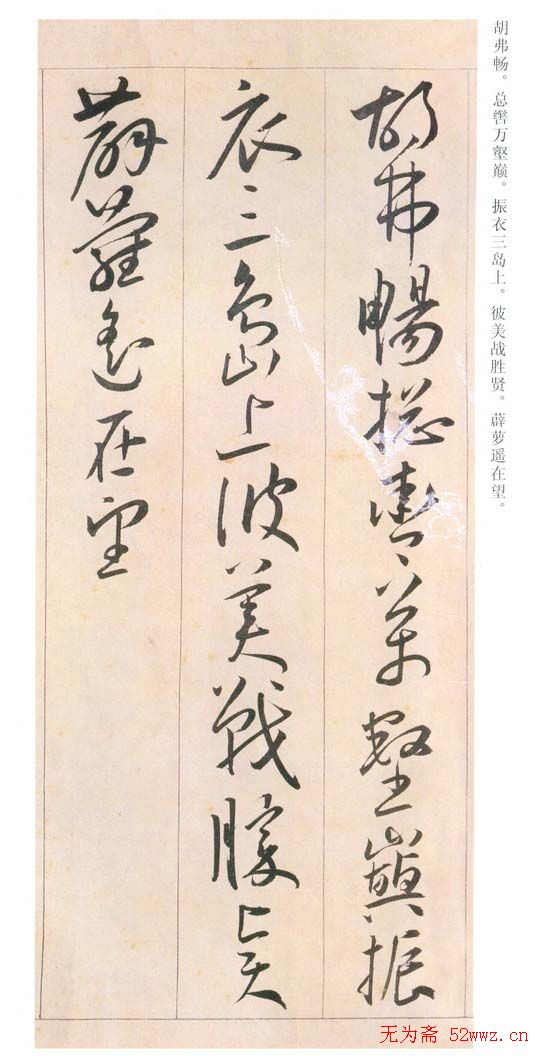 胡弗畅。总辔万壑巅。振衣三岛上。彼美战胜贤。薜萝遥在望。
胡弗暢摠轡萬壑巔振
衣三島上彼美戰勝賢
薜蘿遙在望
无为斋 52wwz.cn